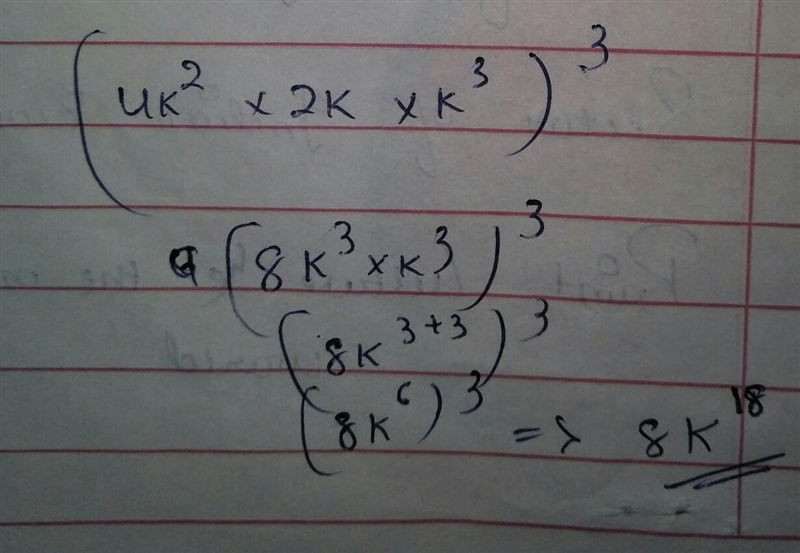 (4k² × 2k × k³)³
(8k³ × k³)³
(8k³⁺³)³
(8k⁶)³ => 8k¹⁸